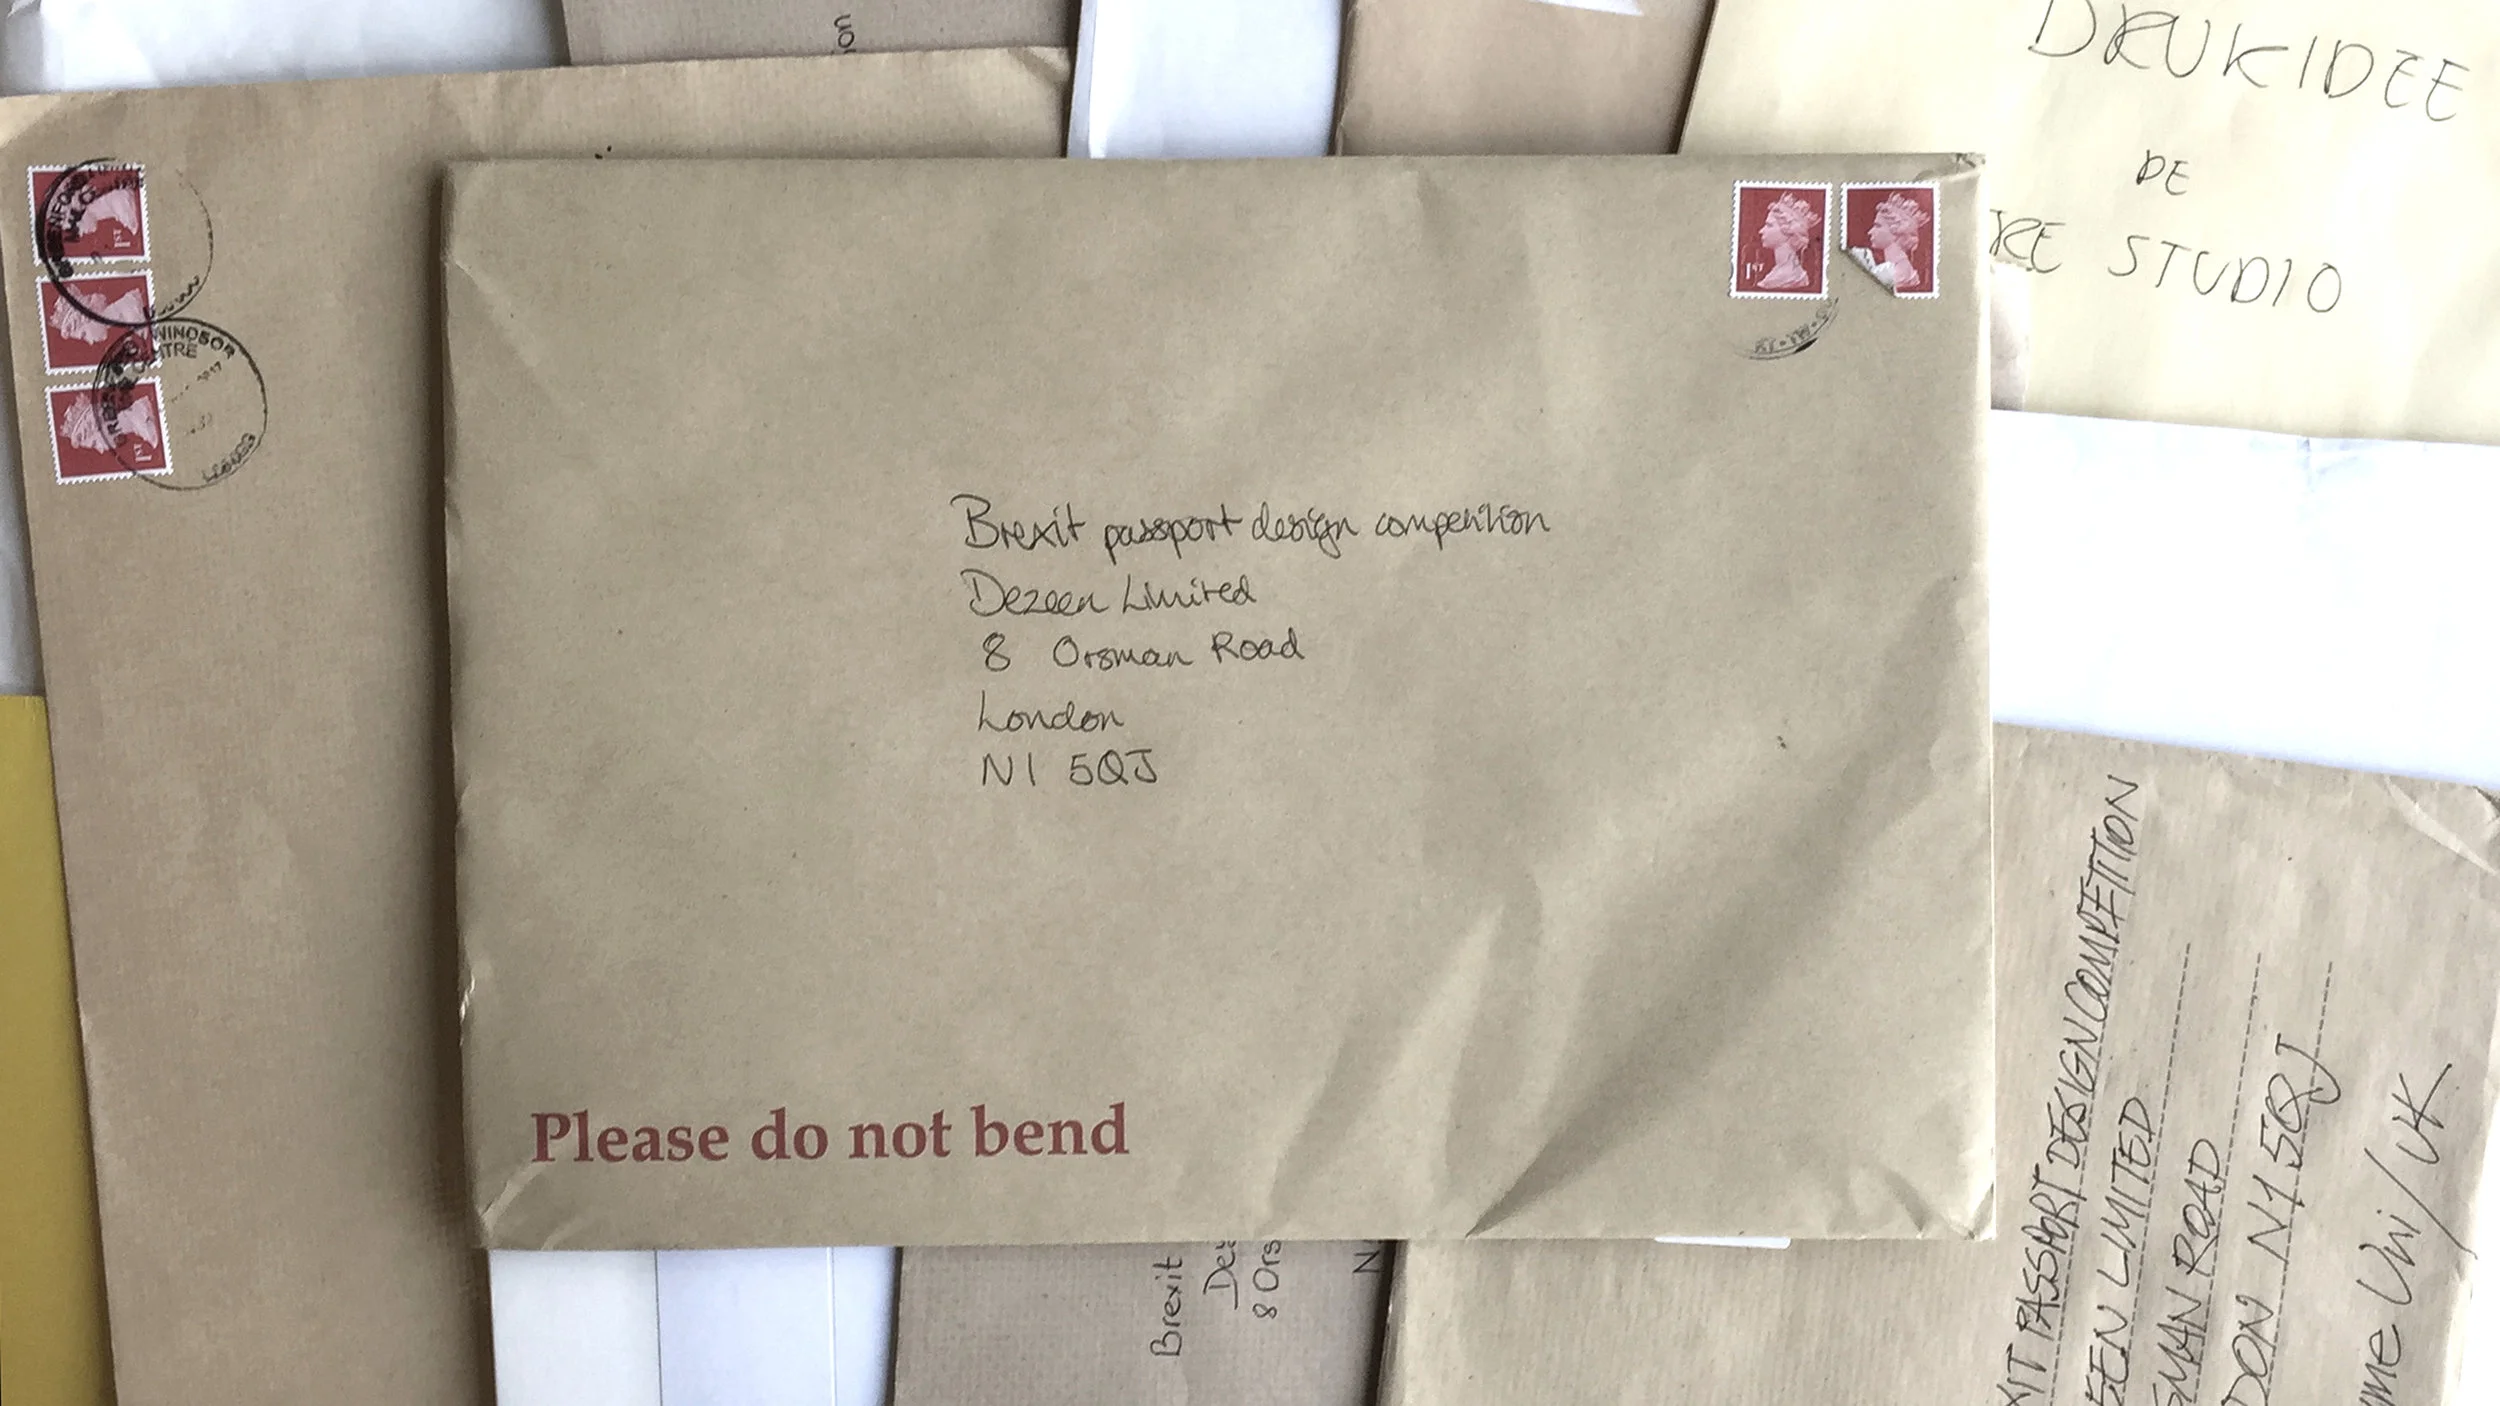 on
DRUKIDEE
DE
RE STUDIO
1ST
WINDSOR
1ST
1ST
Brexit passport design competition
Dezeen Limited
8 Orsman Road
London
N1 5QJ
Please do not bend
Brexit
Dez
8 Ors
N
XIT PASSPORT DESIGN COMPETITION
EEN LIMITED
SMAN ROAD
DON N1 5QJ
ume Uni/UK